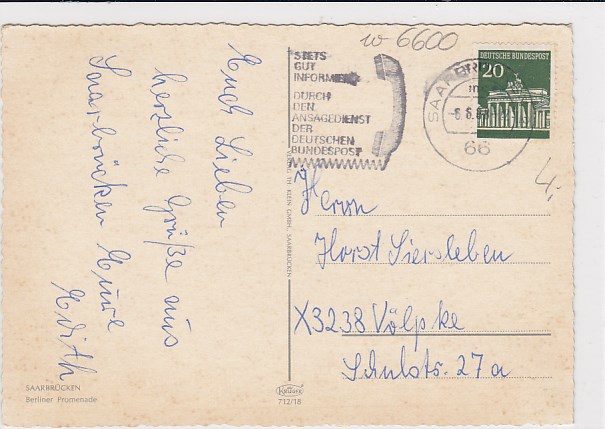 Euch Lieben
herzliche Grüße aus
Saarbrücken Eure
Edith
w 6600
STETS
GUT
INFORMIERT
DURCH
DEN
ANSAGEDIENST
DER
DEUTSCHEN
BUNDESPOST
66
DEUTSCHE BUNDESPOST
20
4,-
Herrn
Horst Siersleben
X3238 Völpke
Schulstr. 27a
VERLAG TH. KLEIN GMBH., SAARBRÜCKEN
SAARBRÜCKEN
Berliner Promenade
KRÜGER
712/18